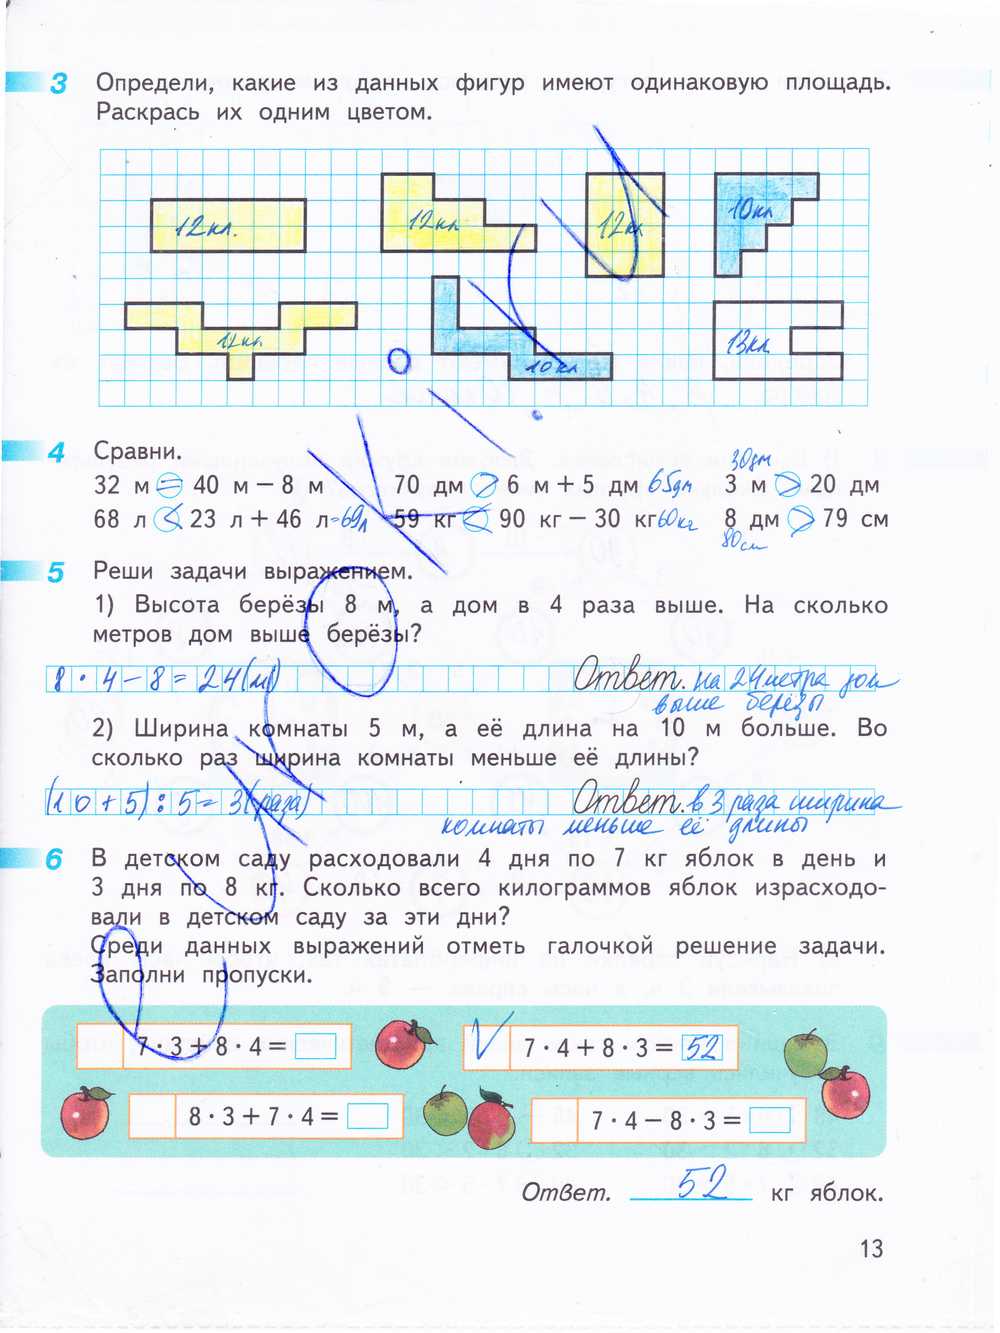 3 Определи, какие из данных фигур имеют одинаковую площадь.
Раскрась их одним цветом.
12кл. 12кл 12кл 10кл
12кл 10кл 13кл
4 Сравни.
30дм
32 м = 40 м – 8 м 70 дм > 6 м + 5 дм 65дм 3 м > 20 дм
68 л < 23 л + 46 л=69л 59 кг < 90 кг – 30 кг 60кг 8 дм > 79 см
80см
5 Реши задачи выражением.
1) Высота берёзы 8 м, а дом в 4 раза выше. На сколько
метров дом выше берёзы?
8 · 4 – 8 = 24(м) Ответ. на 24 метра дом
выше берёзы
2) Ширина комнаты 5 м, а её длина на 10 м больше. Во
сколько раз ширина комнаты меньше её длины?
(10+5):5=3(раза) Ответ. в 3 раза ширина
комнаты меньше её длины
6 В детском саду расходовали 4 дня по 7 кг яблок в день и
3 дня по 8 кг. Сколько всего килограммов яблок израсходо-
вали в детском саду за эти дни?
Среди данных выражений отметь галочкой решение задачи.
Заполни пропуски.
7 · 3 + 8 · 4 = V 7 · 4 + 8 · 3 = 52
8 · 3 + 7 · 4 = 7 · 4 – 8 · 3 =
Ответ. 52 кг яблок.
13